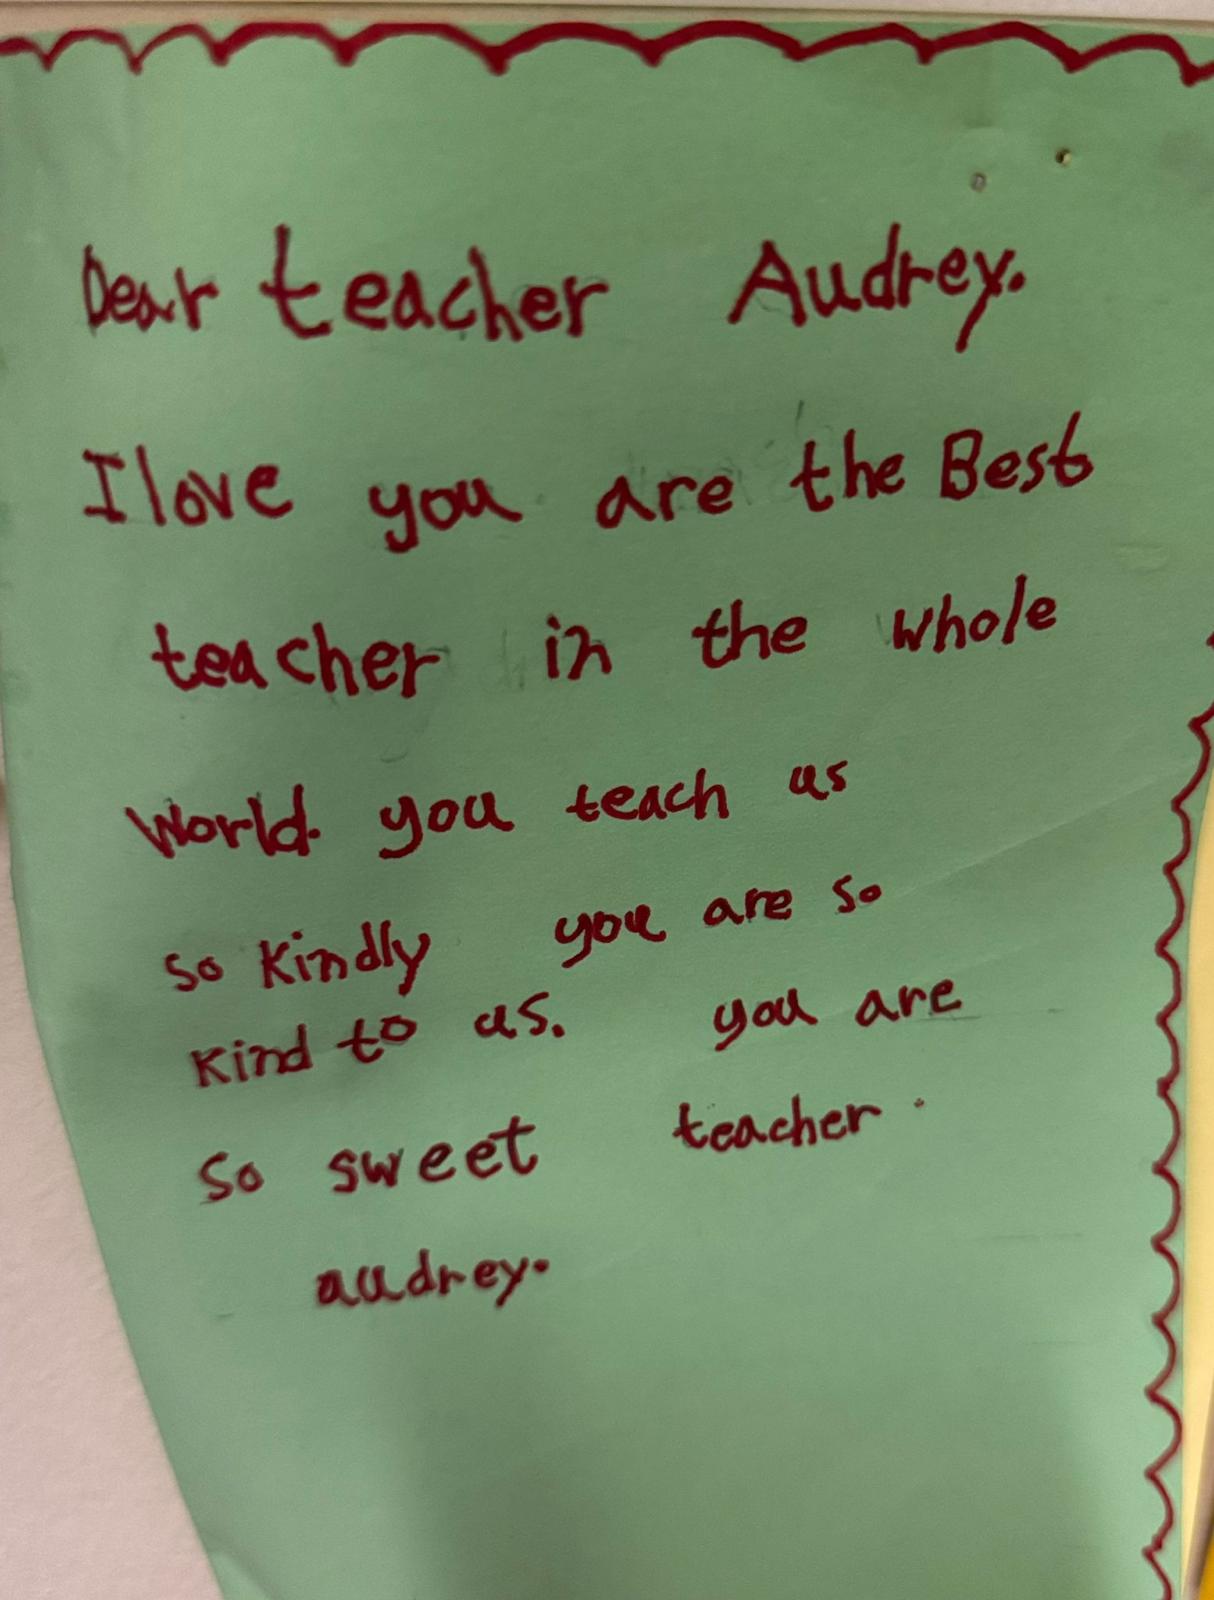 Dear teacher Audrey.
I love you are the Best
teacher in the whole
World. you teach us
so kindly you are so
kind to us. you are
so sweet teacher.
audrey.